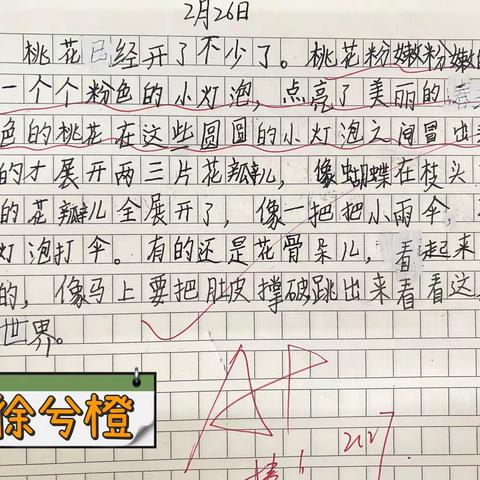 2月26日
桃花已经开了不少了。桃花粉嫩粉嫩的
一个个粉色的小灯泡，点亮了美丽的春
色的桃花在这些圆圆的小灯泡之间冒出
的才展开两三片花瓣儿，像蝴蝶在枝头
的花瓣儿全展开了，像一把把小雨伞，
灯泡打伞。有的还是花骨朵儿，看起来
的，像马上要把肚皮撑破跳出来看看这
世界。
A+
棒！
2127
徐兮橙